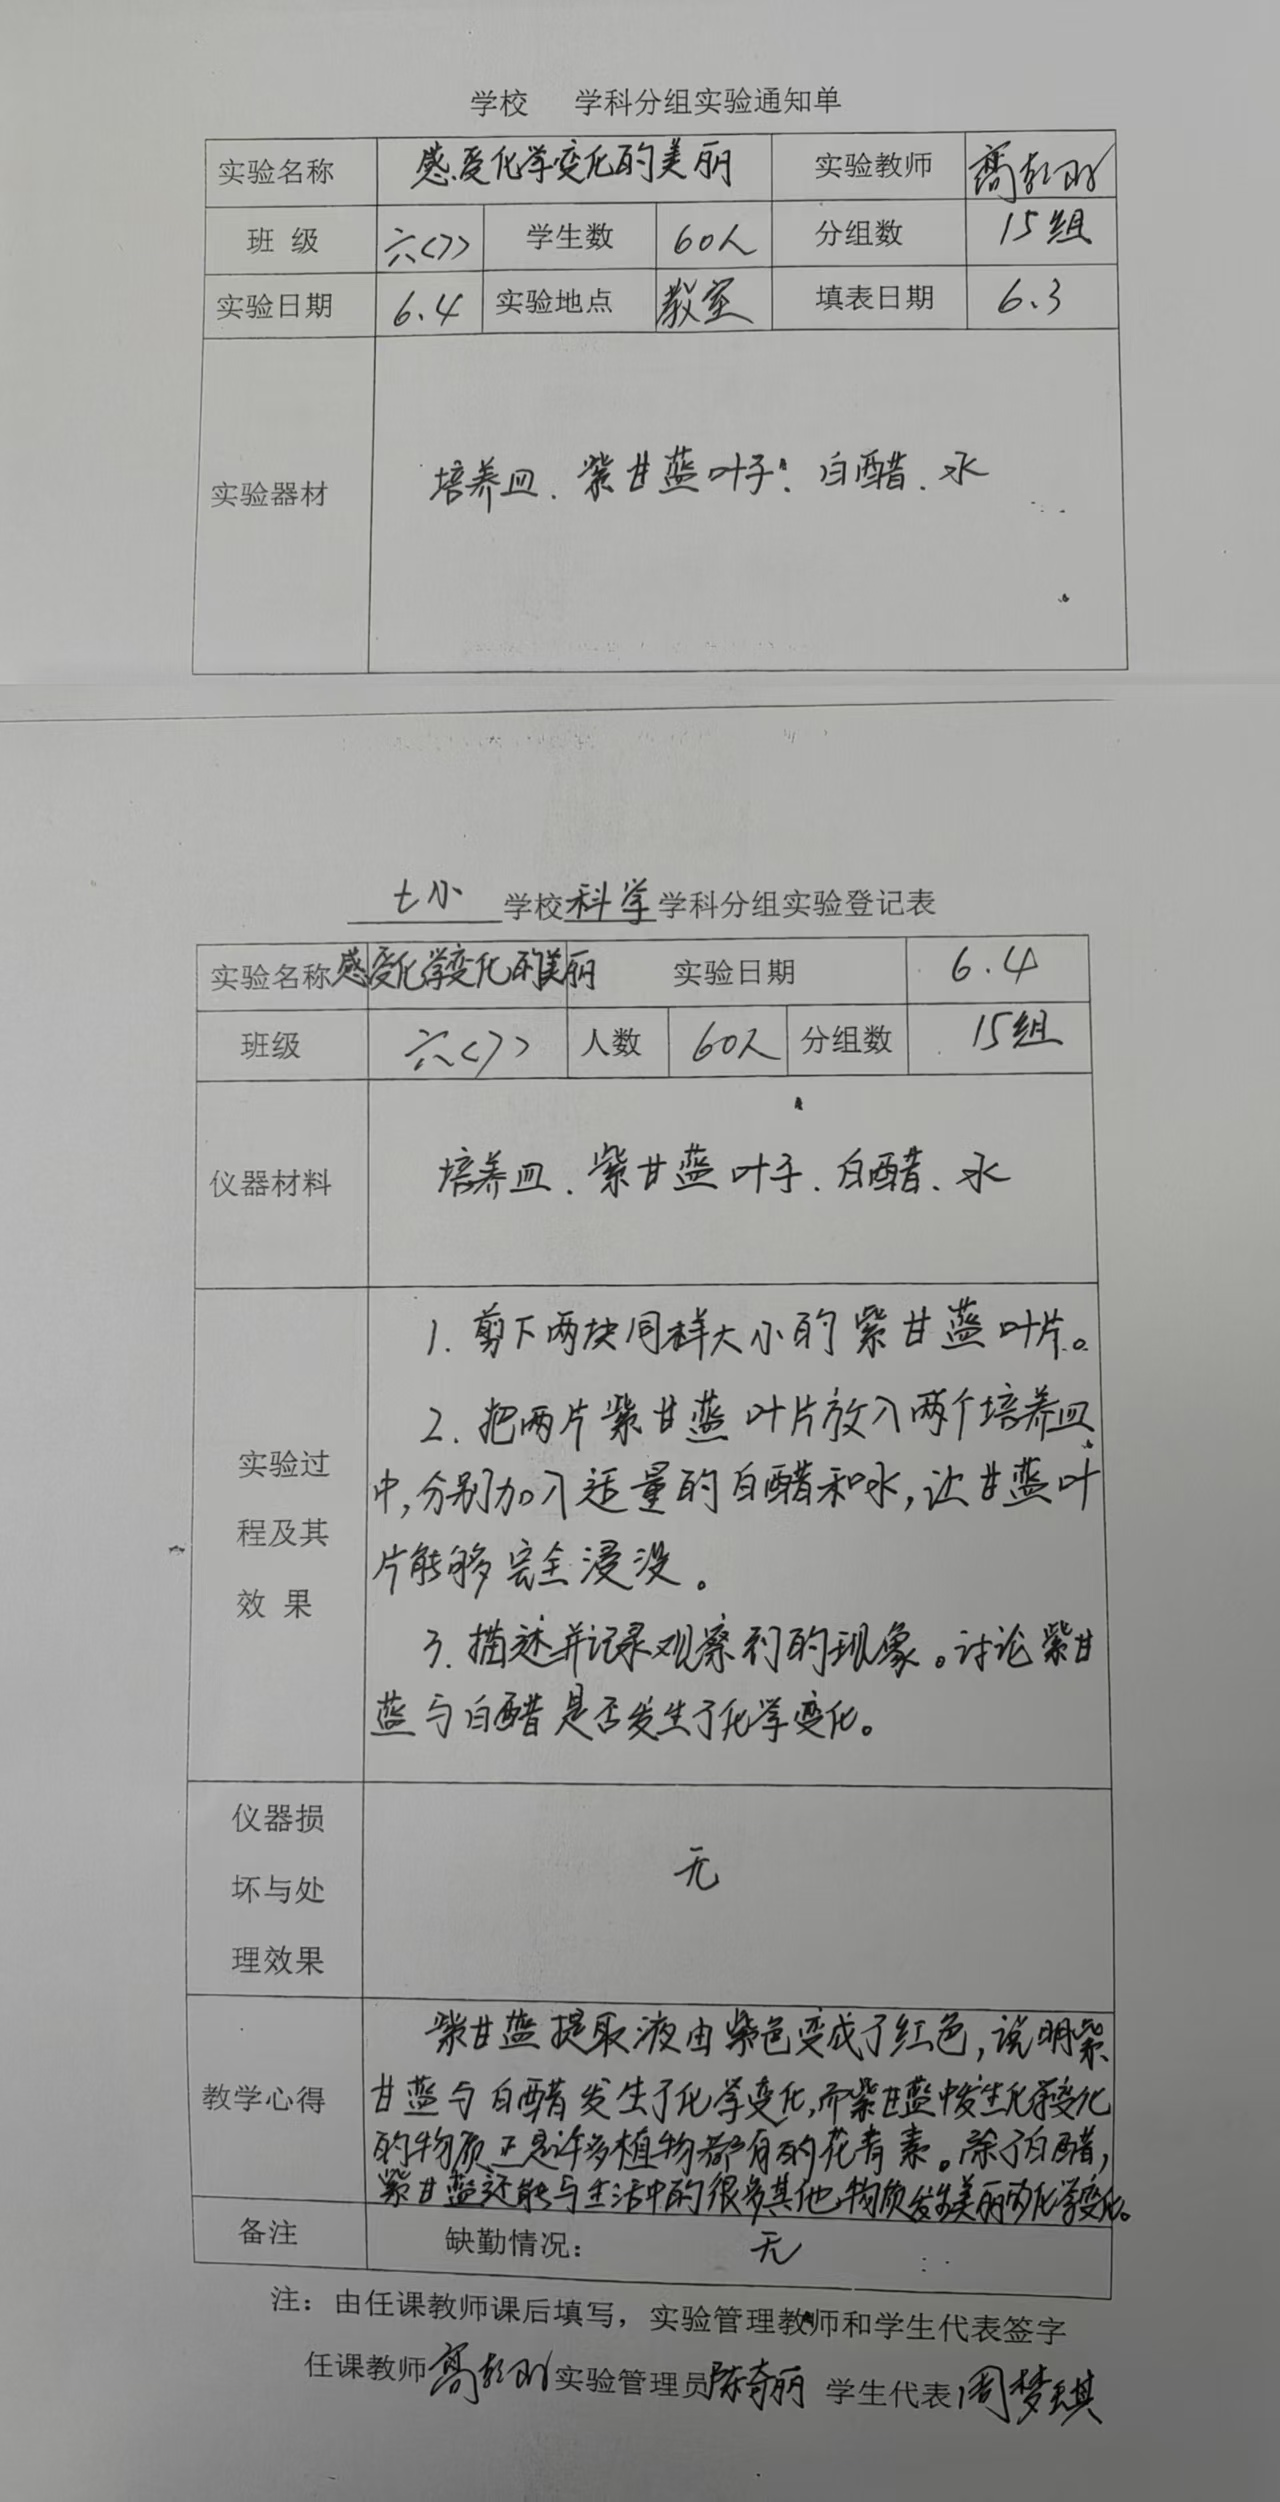 学校 学科分组实验通知单
实验名称 感受化学变化的美丽 实验教师 高
班 级 六(7) 学生数 60人 分组数 15组
实验日期 6.4 实验地点 教室 填表日期 6.3
实验器材 培养皿、紫甘蓝叶子、白醋、水
七小 学校 科学 学科分组实验登记表
实验名称 感受化学变化的美丽 实验日期 6.4
班级 六(7) 人数 60人 分组数 15组
仪器材料 培养皿、紫甘蓝叶子、白醋、水
1. 剪下两块同样大小的紫甘蓝叶片。
2. 把两片紫甘蓝叶片放入两个培养皿
实验过
中,分别加入适量的白醋和水,让甘蓝叶
程及其
片能够完全浸没。
效 果
3. 描述并记录观察到的现象。讨论紫甘
蓝与白醋是否发生了化学变化。
仪器损
坏与处 无
理效果
紫甘蓝提取液由紫色变成了红色,说明紫
教学心得 甘蓝与白醋发生了化学变化,而紫甘蓝中发生化学变化
的物质正是许多植物都有的花青素。除了白醋,
紫甘蓝还能与生活中的很多其他物质发生美丽的化学变化。
备注 缺勤情况: 无
注:由任课教师课后填写,实验管理教师和学生代表签字
任课教师 高 实验管理员 陈奇丽 学生代表 周梦琪